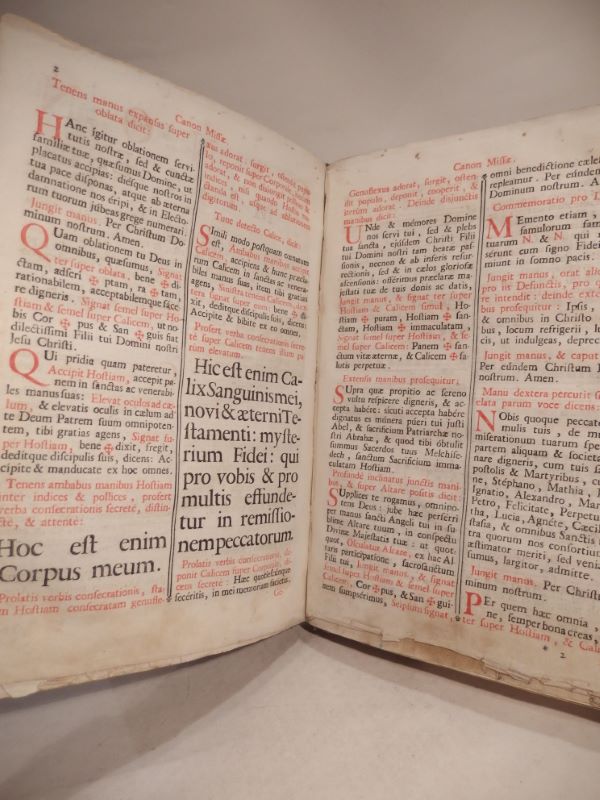 2
Canon Missæ
Tenens manus expansas super
oblata dicit:
HAnc igitur oblationem servi
tutis nostræ, sed & cunctæ
familiæ tuæ, quæsumus Domine, ut
placatus accipias: diesque nostros in
tua pace disponas, atque ab æterna
damnatione nos eripi, & in Electo-
rum tuorum jubeas grege numerari.
Jungit manus. Per Christum Do-
minum nostrum. Amen.
QUam oblationem tu Deus in
omnibus, quæsumus, Signat
ter super oblata, bene ✠ di-
ctam, adscri ✠ ptam, ra ✠ tam,
rationabilem, acceptabilemque face-
re digneris. Signat semel super Ho-
stiam & semel super Calicem, ut no-
bis Cor ✠ pus & San ✠ guis fiat
dilectissimi Filii tui Domini nostri
Jesu Christi.
QUi pridie quam pateretur,
Accipit Hostiam, accepit pa-
nem in sanctas ac venerabi-
les manus suas: Elevat oculos ad cæ-
lum, & elevatis oculis in cælum ad
te Deum Patrem suum omnipoten-
tem, tibi gratias agens, Signat su-
per Hostiam, bene ✠ dixit, fregit,
deditque discipulis suis, dicens: Ac
cipite & manducate ex hoc omnes.
Tenens ambabus manibus Hostiam
inter indices & pollices, profert
verba consecrationis secretè, distin-
ctè, & attentè:
Hoc est enim
Corpus meum.
Prolatis verbis consecrationis, sta-
tim Hostiam consecratam genufle-
xus adorat: surgit, ostendit popu-
lo, reponit super Corporale, iterum
adorat, & non disjungit pollices &
indices, nisi quando Hostia tra-
ctanda est, usque ad ablutionem
digitorum.
Tunc detecto Calice, dicit:
SImili modo postquam cœnatum
est, Ambabus manibus accipit
Calicem, accipiens & hunc præcla-
rum Calicem in sanctas ac venera-
biles manus suas, item tibi gratias
agens, Sinistra tenens Calicem, dex-
tera signat super eum, bene ✠ di-
xit, deditque discipulis suis, dicens:
Accipite & bibite ex eo omnes.
Profert verba consecrationis secre-
tè super Calicem tenens illum pa-
rum elevatum.
Hic est enim Ca-
lix Sanguinis mei,
novi & æterni Te-
stamenti: myste-
rium Fidei: qui
pro vobis & pro
multis effunde-
tur in remissio-
nem peccatorum.
Prolatis verbis consecrationis, de-
ponit Calicem super Corporale, di-
cens secretè: Hæc quotiescumque
feceritis, in mei memoriam facietis.
Ge-
Canon Missæ
Genuflexus adorat, surgit, osten-
dit populo, deponit, cooperit, &
iterum adorat. Deinde disjunctis
manibus dicit:
UNde & memores Domine
nos servi tui, sed & plebs
tua sancta, ejusdem Christi Filii
tui Domini nostri tam beatæ pas-
sionis, necnon & ab inferis resur-
rectionis, sed & in cælos gloriosæ
ascensionis: offerimus præclaræ ma-
jestati tuæ de tuis donis ac datis,
Jungit manus, & signat ter super
Hostiam & Calicem simul, Ho-
stiam ✠ puram, Hostiam ✠ san-
ctam, Hostiam ✠ immaculatam,
Signat semel super Hostiam, & se-
mel super Calicem: Panem ✠ san-
ctum vitæ æternæ, & Calicem ✠ sa-
lutis perpetuæ.
Extensis manibus prosequitur:
SUpra quæ propitio ac sereno
vultu respicere digneris, & ac-
cepta habére: sicuti accepta habére
dignatus es múnera púeri tui justi
Abel, & sacrificium Patriarchæ no-
stri Abrahæ, & quod tibi óbtulit
summus Sacerdos tuus Melchise-
dech, sanctum Sacrificium imma-
culatam Hostiam.
Profundè inclinatus junctis mani-
bus, & super Altare positis dicit:
SUpplices te rogamus, omnipo-
tens Deus: jube hæc perférri
per manus sancti Angeli tui in su-
blime Altare tuum, in conspectu
Divinæ Majestatis tuæ: ut quot-
quot, Osculatur Altare, ex hac Al-
taris participatione, sacrosanctum
Filii tui, Jungit manus, & signat
semel super Hostiam & semel super
Calicem, Cor ✠ pus, & San ✠ gui-
nem sumpsérimus, Seipsum signat,
omni benedictione cælesti
repleamur. Per eúndem
Dominum nostrum. A
Commemoratio pro D
MEmento etiam,
famulorum fam
tuarum N. & N. qui n
sérunt cum signo Fidei
miunt in somno pacis.
Jungit manus, orat ali
pro iis Defunctis, pro q
re intendit: deinde exte
bus prosequitur: Ipsis,
& omnibus in Christo
bus, locum refrigerii, lu
cis, ut indulgeas, deprec
Jungit manus, & caput
Per eúndem Christum D
nostrum. Amen.
Manu dextera percutit si
data parum voce dicens:
NObis quoque peccato
mulis tuis, de m
miserationum tuarum spe
partem aliquam & societa
nare digneris, cum tuis sa
postolis & Martyribus, cu
ne, Stéphano, Mathia, B
Ignatio, Alexandro, Mar
Petro, Felicitate, Perpetu
tha, Lucia, Agnéte, Cæci
stasia, & omnibus Sanctis t
tra quorum nos consortiu
æstimator meriti, sed venia
sumus, largitor, admitte.
Jungit manus. Per Christ
minum nostrum.
PEr quem hæc omnia,
ne, semper bona creas,
ter super Hostiam, & Cali
* 2